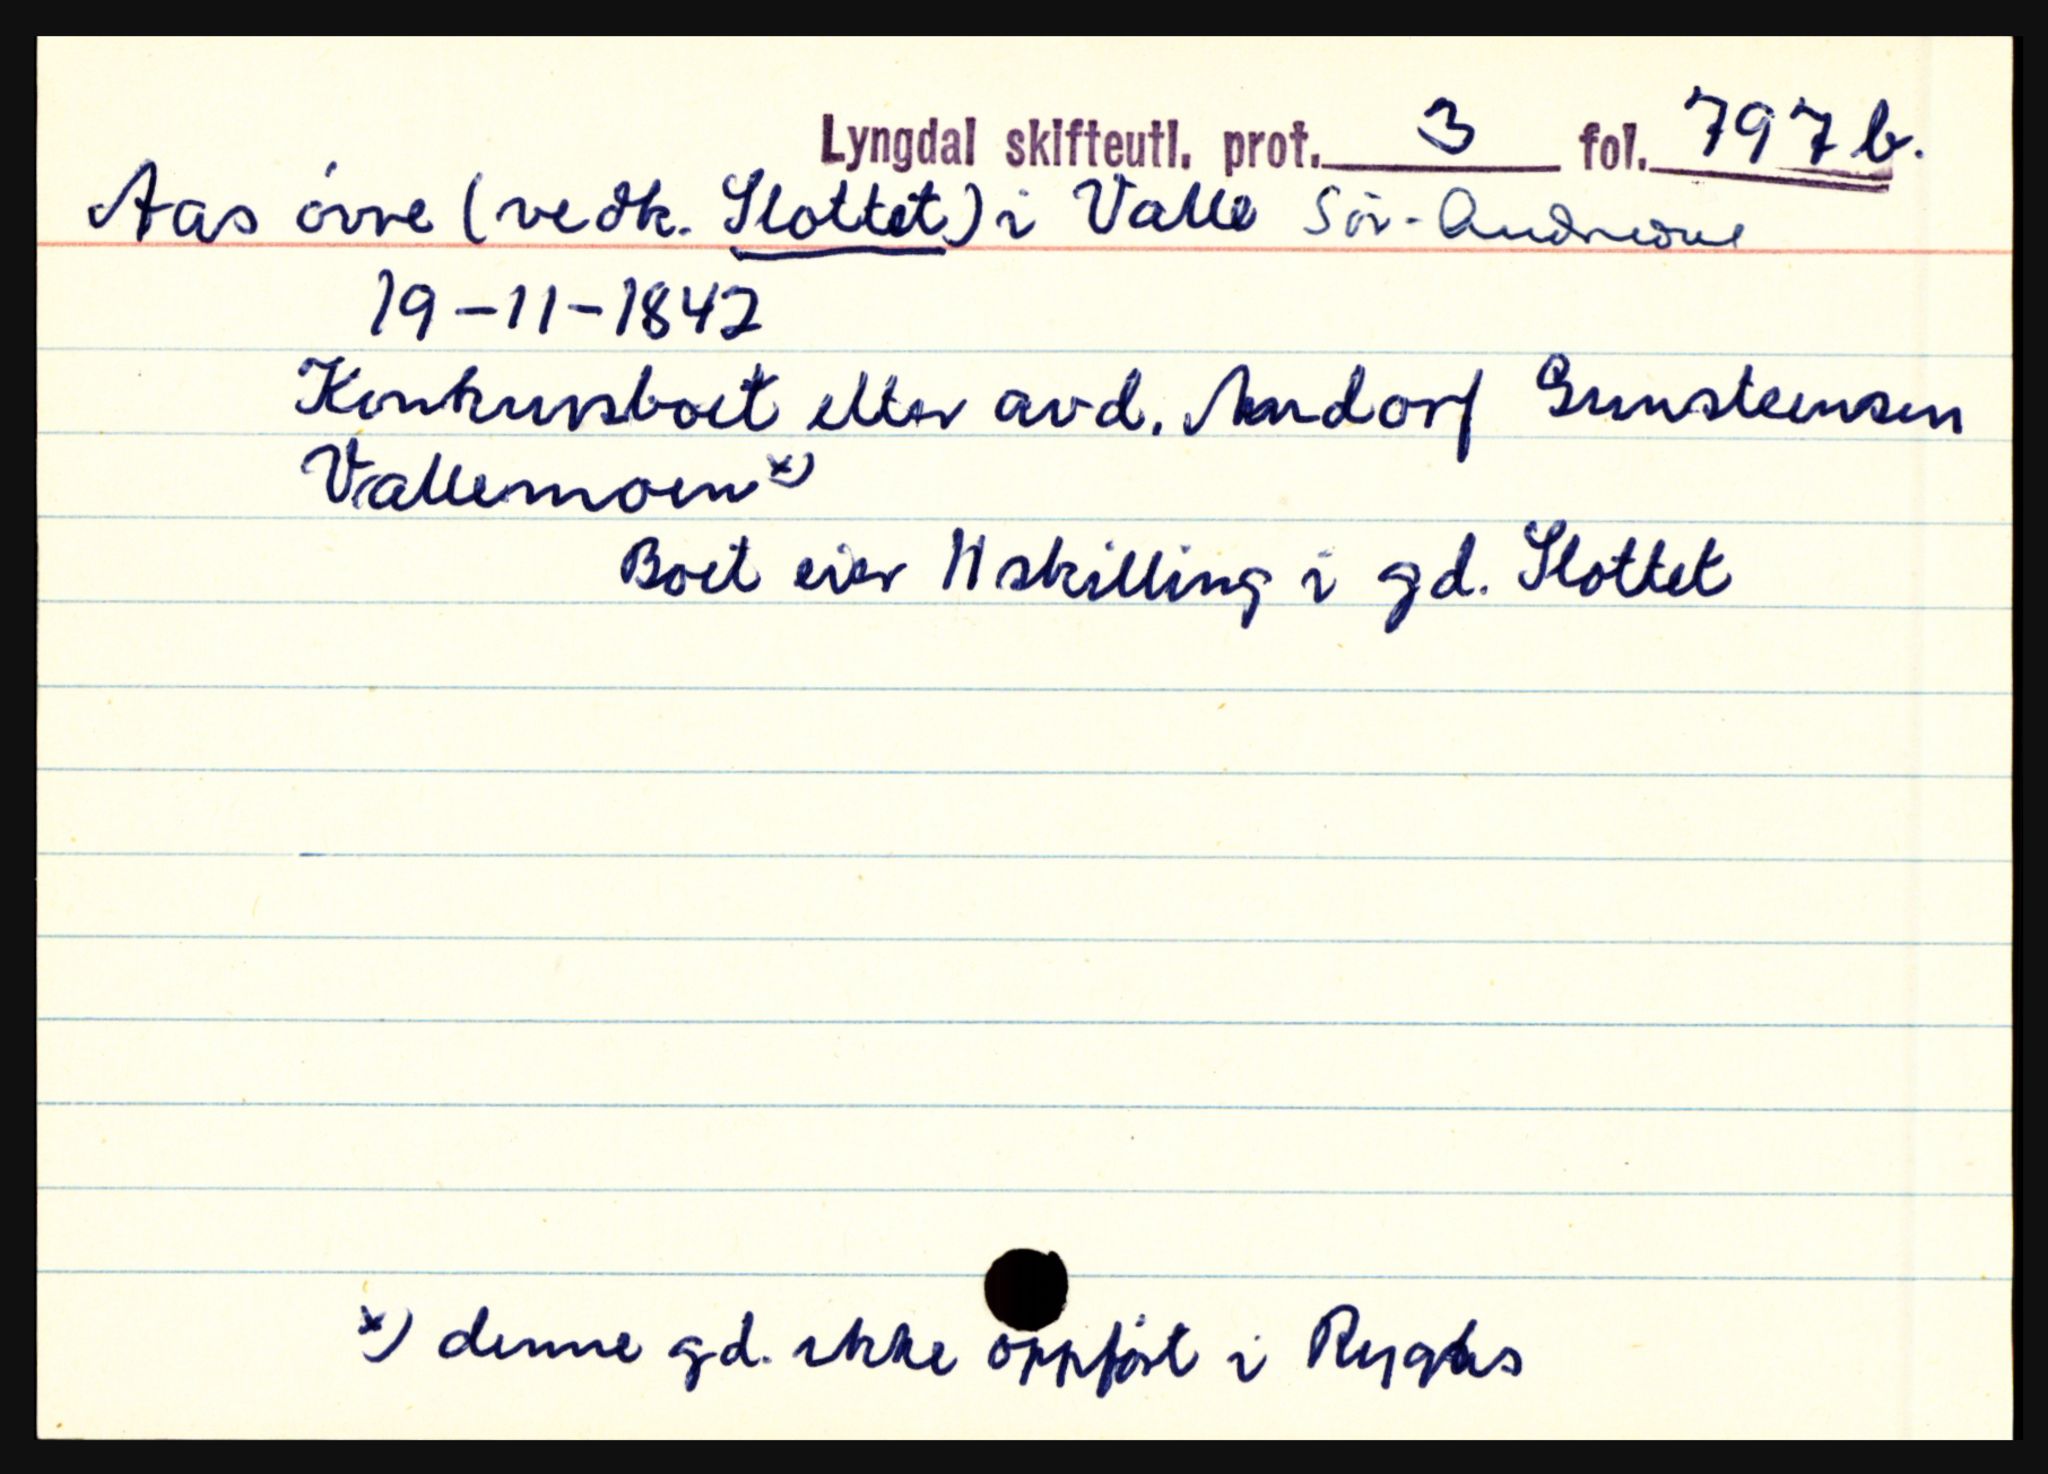 Lyngdal skifteutl. prot. 3 fol. 797 b.
Aas övre (vedk. Slottet) i Valle Sör-Audnedal
19-11-1842
Konkursboet etter avd. Aandorf Gunsteensen
Vallemoen x)
Boet eier 11 skilling i gd. Slottet
x) denne gd. ikke oppfört i Ryghs